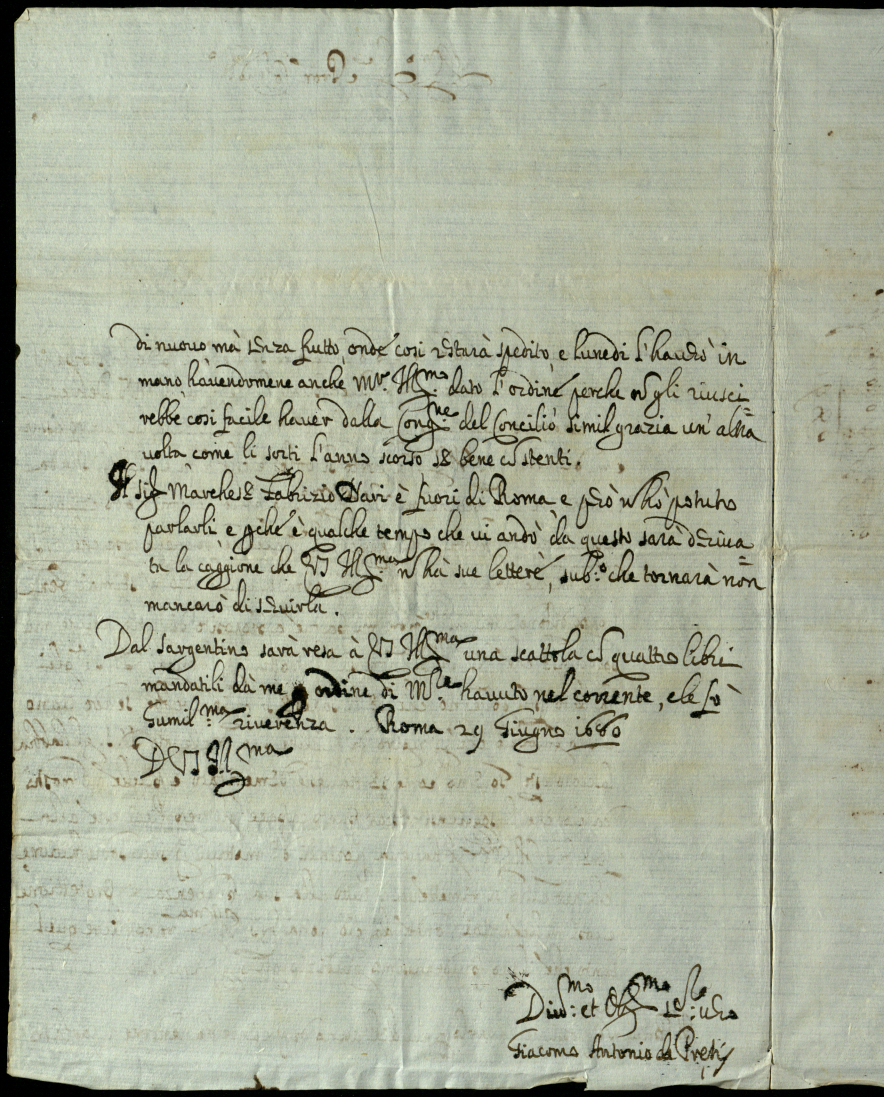 di nuouo mà senza frutto, onde cosi restarà spedito e lunedi l'hauerò in
mano havendomene anche Mr. Ill.mo dato l'ordine perche no gli riusci
rebbe cosi facile haver dalla Cong.ne del Concilio simil grazia un' altra
volta come li sorti l'anno scorso se bene co stenti.
Il sig Marchese Fabrizio Navi è fuori di Roma e però n hò potuto
parlarli e pche è qualche tempo che vi andò da questo sarà deriua
ta la caggione che VS Ill.ma n hà sue lettere, sub.o che tornarà non
mancarò di seruirla.
Dal sargentino sarà resa à VS Ill.ma una scattola co quattro libri
mandatili dà me p ordine di M.re havuto nel corrente, e le fò
humil.ma riverenza. Roma 29 Giugno 1680
D VS Ill.ma
Diu.mo et Obl.mo ser.re uero
Giacomo Antonio de Preti